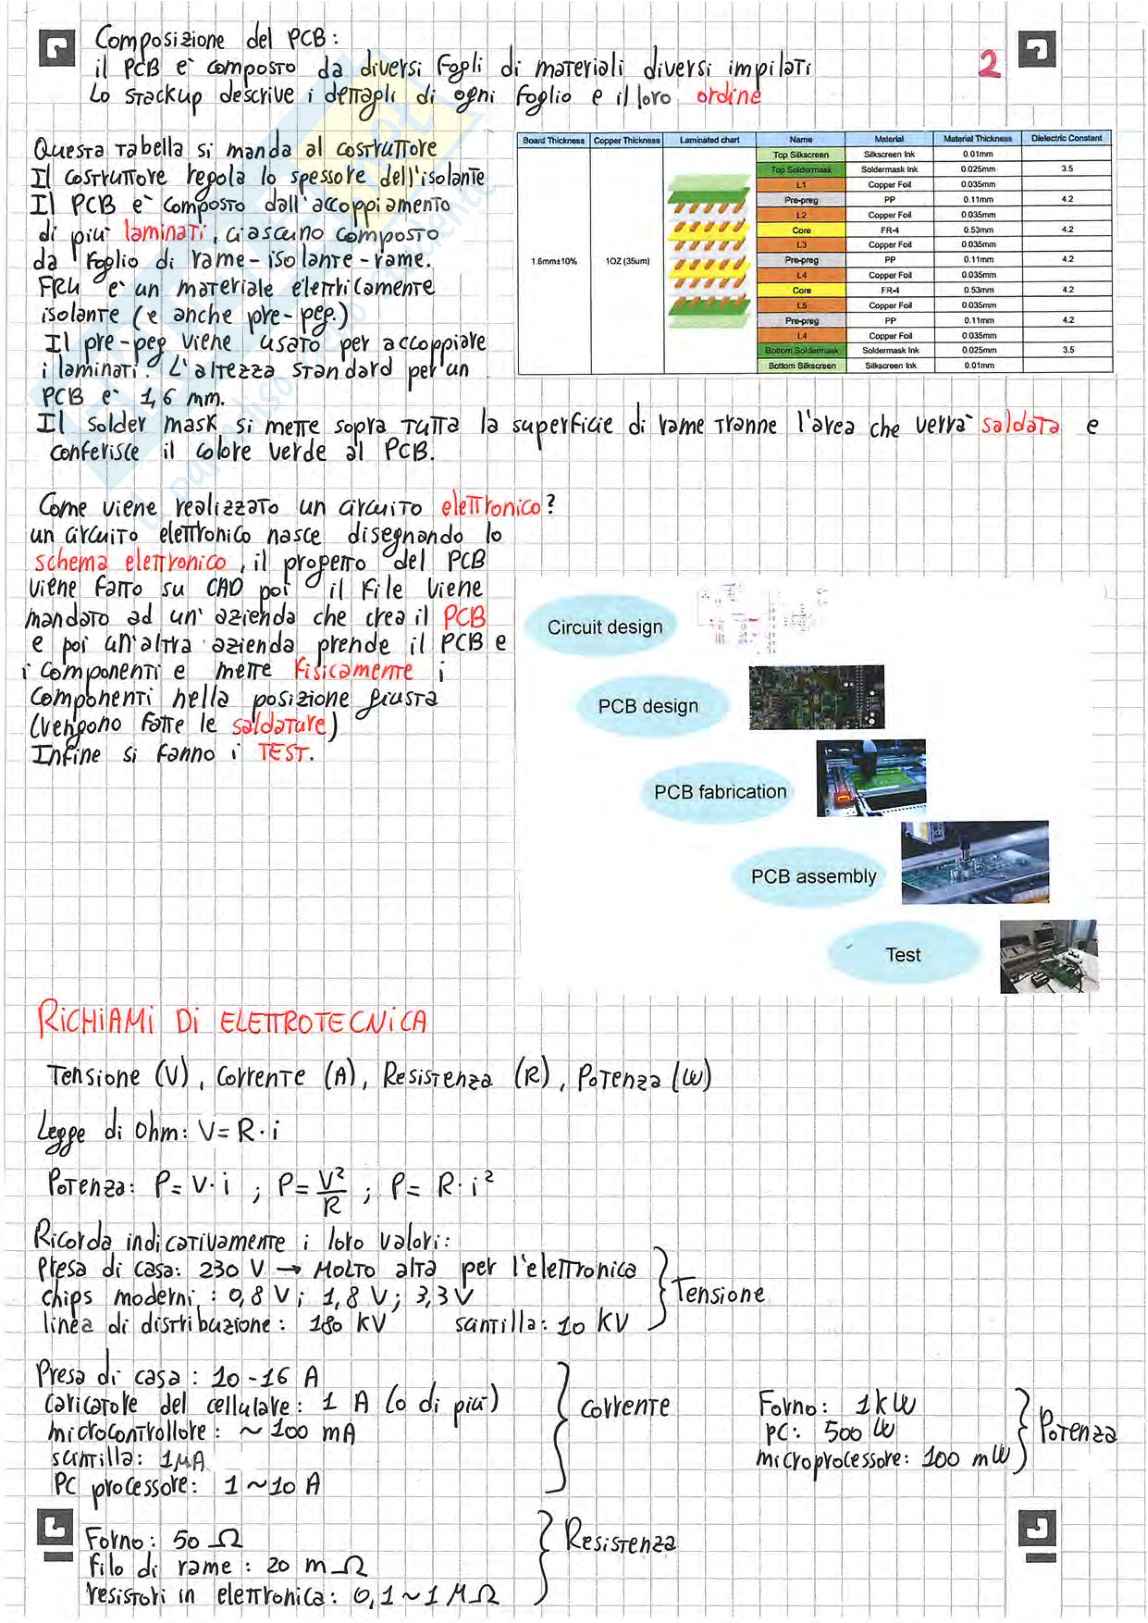 Composizione del PCB:
il PCB è composto da diversi fogli di materiali diversi impilati
2
Lo stackup descrive i dettagli di ogni foglio e il loro ordine
Questa tabella si manda al costruttore
Il costruttore regola lo spessore dell'isolante
Il PCB è composto dall'accoppiamento
di più laminati, ciascuno composto
da foglio di rame-isolante-rame.
FR4 è un materiale elettricamente
isolante (e anche pre-peg.)
Il pre-peg viene usato per accoppiare
i laminati. L'altezza standard per un
PCB è 1,6 mm.
Board Thickness Copper Thickness Laminated chart Name Material Material Thickness Dielectric Constant
Top Silkscreen Silkscreen Ink 0.01mm
Top Soldermask Soldermask Ink 0.025mm 3.5
L1 Copper Foil 0.035mm
Pre-preg PP 0.11mm 4.2
L2 Copper Foil 0.035mm
Core FR-4 0.53mm 4.2
L3 Copper Foil 0.035mm
1.6mm±10% 1OZ (35um) Pre-preg PP 0.11mm 4.2
L4 Copper Foil 0.035mm
Core FR-4 0.53mm 4.2
L5 Copper Foil 0.035mm
Pre-preg PP 0.11mm 4.2
L4 Copper Foil 0.035mm
Bottom Soldermask Soldermask Ink 0.025mm 3.5
Bottom Silkscreen Silkscreen Ink 0.01mm
Il solder mask si mette sopra tutta la superficie di rame tranne l'area che verrà saldata e
conferisce il colore verde al PCB.
Come viene realizzato un circuito elettronico?
un circuito elettronico nasce disegnando lo
schema elettronico, il progetto del PCB
viene fatto su CAD poi il file viene
mandato ad un'azienda che crea il PCB
e poi un'altra azienda prende il PCB e
i componenti e mette fisicamente i
componenti nella posizione giusta
(vengono fatte le saldature)
Infine si fanno i TEST.
Circuit design
PCB design
PCB fabrication
PCB assembly
Test
RICHIAMI DI ELETTROTECNICA
Tensione (V), Corrente (A), Resistenza (R), Potenza (W)
Legge di Ohm: V=R·i
Potenza: P=V·i ; P=V²/R ; P=R·i²
Ricorda indicativamente i loro valori:
Presa di casa: 230 V → MOLTO alta per l'elettronica
chips moderni: 0,8 V; 1,8 V; 3,3 V
Tensione
linea di distribuzione: 180 KV scintilla: 10 KV
Presa di casa: 10-16 A
caricatore del cellulare: 1 A (o di più)
microcontrollore: ~100 mA
scintilla: 1µA
PC processore: 1~10 A
Corrente
Forno: 1kW
PC: 500 W
microprocessore: 100 mW
Potenza
Forno: 50 Ω
filo di rame: 20 mΩ
resistori in elettronica: 0,1~1 MΩ
Resistenza